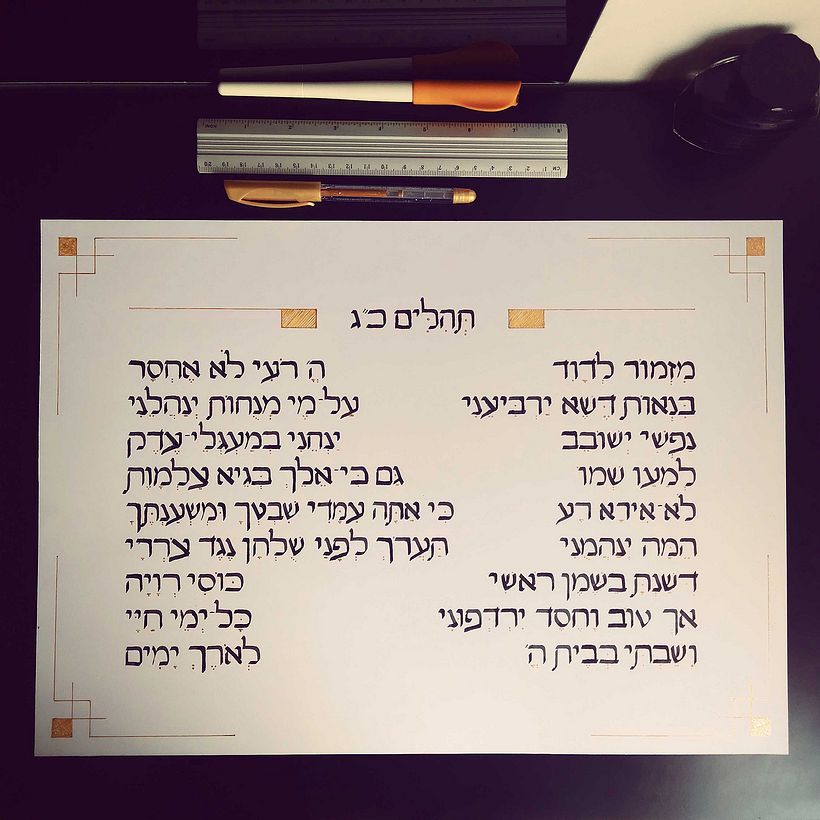 INCH 1 2 3 4 5 6 7 8
20 19 18 17 16 15 14 13 12 11 10 9 8 7 6 5 4 3 2 1 CM
תְּהִלִּים כ״ג
מִזְמוֹר לְדָוִד ה' רֹעִי לֹא אֶחְסָר
בִּנְאוֹת דֶּשֶׁא יַרְבִּיצֵנִי עַל־מֵי מְנֻחוֹת יְנַהֲלֵנִי
נַפְשִׁי יְשׁוֹבֵב יַנְחֵנִי בְמַעְגְּלֵי־צֶדֶק
לְמַעַן שְׁמוֹ גַּם כִּי־אֵלֵךְ בְּגֵיא צַלְמָוֶת
לֹא־אִירָא רָע כִּי אַתָּה עִמָּדִי שִׁבְטְךָ וּמִשְׁעַנְתֶּךָ
הֵמָּה יְנַחֲמֻנִי תַּעֲרֹךְ לְפָנַי שֻׁלְחָן נֶגֶד צֹרְרָי
דִּשַּׁנְתָּ בַשֶּׁמֶן רֹאשִׁי כּוֹסִי רְוָיָה
אַךְ טוֹב וָחֶסֶד יִרְדְּפוּנִי כָּל־יְמֵי חַיָּי
וְשַׁבְתִּי בְּבֵית ה' לְאֹרֶךְ יָמִים